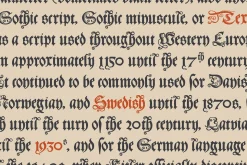 Gothic script, Gothic minuscule, or Tex
s a script used throughout Western Euro
m approximately 1150 until the 17th century
It continued to be commonly used for Danish
Norwegian, and Swedish until the 1870s,
until the turn of the 20th century, Latvia
the 1930s, and for the German language